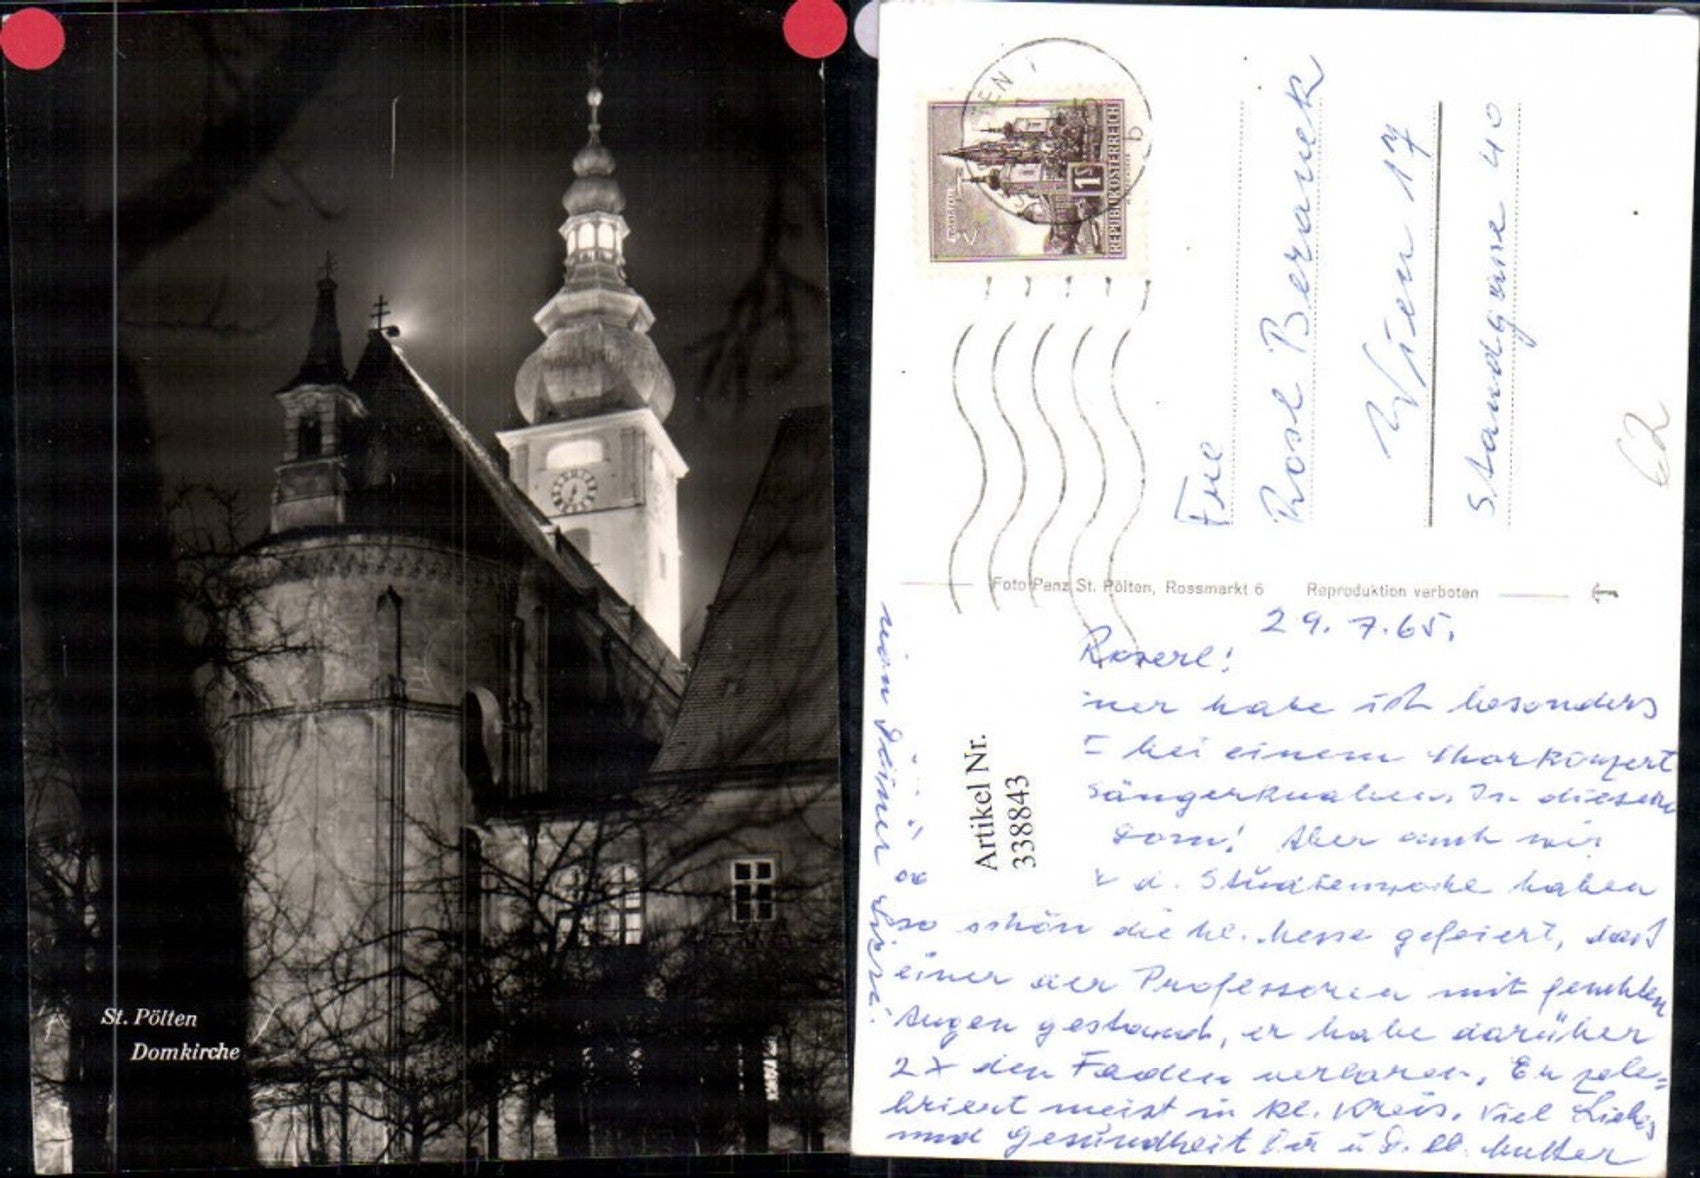 St. Pölten
Domkirche
REPUBLIK ÖSTERREICH
1S
Rosl Beranek
Wien 17
Standgasse 40
62
Foto Panz St. Pölten, Rossmarkt 6 Reproduktion verboten
29. 7. 65.
Roserl!
habe ich besonders
bei einem Chorkonzert
Sängerknaben. In diesem
Dom! Aber auch wir
d. Studienwoche haben
so schön die hl. Messe gefeiert, daß
einer der Professoren mit feuchten
Augen gestand, er habe darüber
2x den Faden verloren. Er zele-
briert meist in kl. Kreis. Viel Liebes
und Gesundheit Dir u. D. lb. Mutter
von Deiner
Artikel Nr.
338843